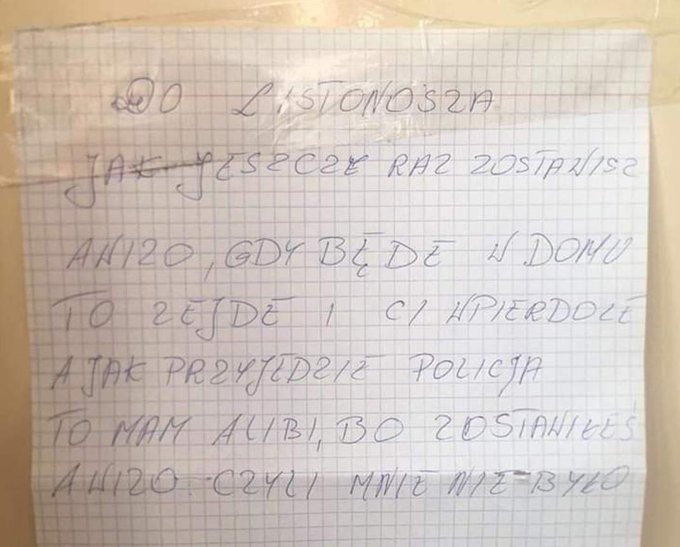 DO LISTONOSZA
JAK JESZCZE RAZ ZOSTAWISZ
AWIZO, GDY BĘDE W DOMU
TO ZEJDE I CI WPIERDOLE
A JAK PRZYJEDZIE POLICJA
TO MAM ALIBI, BO ZOSTAWIŁEŚ
AWIZO. CZYLI MNIE NIE BYŁO